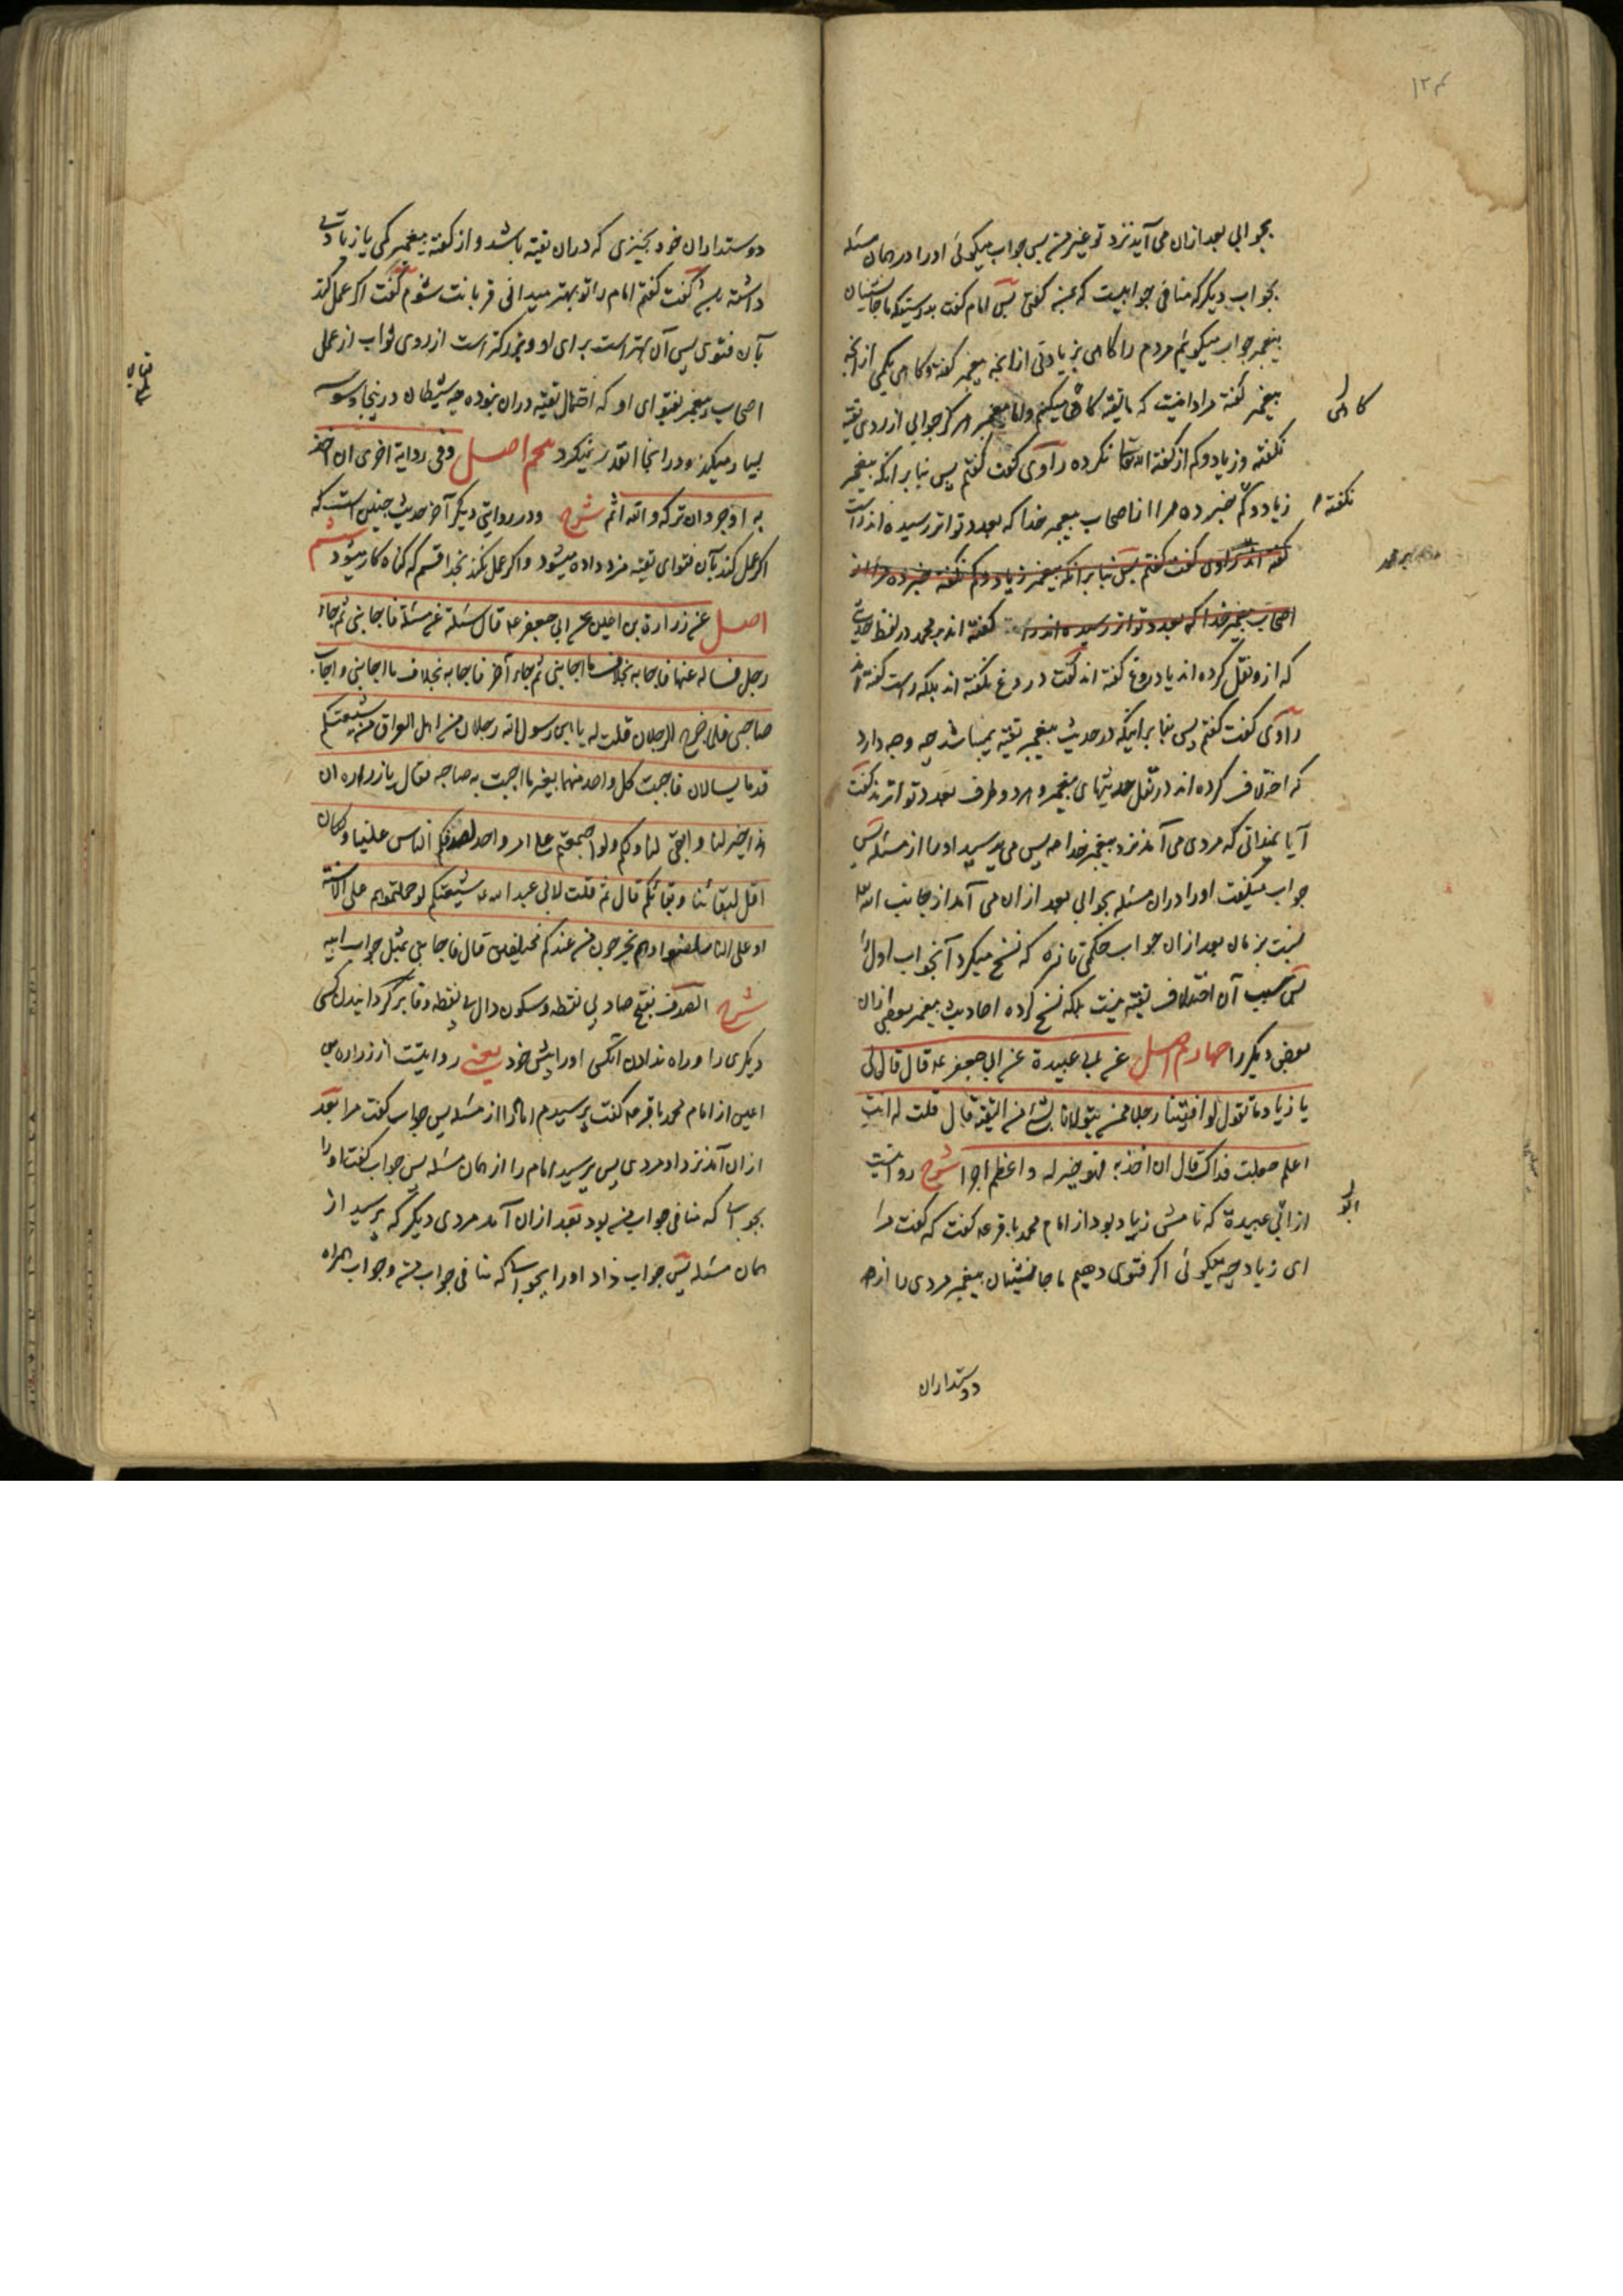 ۱۲۴
بجوابی بعد ازان می آید نزد تو غیر من پس جواب میگوئی او را در همان مسئله
بجواب دیگر که منافی جوابیست که بمن گفتی پس امام گفت بدرستیکه ما جانشینان
پیغمبر جواب میگوئیم مردم را گاهی بزیادتی از آنچه پیغمبر گفته و گاهی بکمی از آنچه
پیغمبر گفته مراد اینست که ما تقیه گاهی میکنیم و اما پیغمبر هرگز جوابی از روی تقیه
گاهی
نگفته و زیاد و کم از گفته الله تعالی نکرده راوی گفت گفتم پس بنا بر آنکه پیغمبر
زیاد و کم خبر ده مرا از اصحاب پیغمبر خدا که بعدد تواتر رسیده اند راست
نگفته
گفته اند راوی گفت گفتم پس بنا بر آنکه پیغمبر زیاد و کم نگفته خبر ده مرا از
اصحاب پیغمبر خدا که بعدد تواتر رسیده اند راست گفته اند بر محمد در لفظ حدیث
که ازو نقل کرده اند یا دروغ گفته اند گفت دروغ نگفته اند بلکه راست گفته اند
راوی گفت گفتم پس بنا بر اینکه در حدیث پیغمبر تقیه نمیباشد چه وجه دارد
که اختلاف کرده اند در نقل حدیثهای پیغمبر و هر دو طرف بعدد تواترند گفت
آیا نمیدانی که مردی می آمد نزد پیغمبر خدا پس می پرسید او را از مسئله پس
جواب میگفت او را دران مسئله بجوابی بعد ازان می آمد از جانب الله
نسبت بزمان بعد ازان جواب حکمی تازه که نسخ میکرد آنجواب اول را
پس سبب آن اختلاف تقیه نیست بلکه نسخ کرده احادیث پیغمبر بعضی ازان
بعضی دیگر را چهارم اصل عن ابی عبیدة عن ابی جعفر ع قال قال لی
یا زیاد ما تقول لو افتینا رجلا ممن یتولانا بشئ من التقیة قال قلت له انت
اعلم جعلت فداک قال ان اخذ به فهو خیر له و اعظم اجرا شرح روایتست
از ابی عبیدة که نامش زیاد بود از امام محمد باقر ع گفت که گفت مرا
ابو
ای زیاد چه میگوئی اگر فتوی دهیم ما جانشینان پیغمبر مردی را از
دوستداران
دوستداران خود بچیزی که دران تقیه باشد و از گفته پیغمبر کمی یا زیادتی
داشته باشد گفت گفتم امام را تو بهتر میدانی قربانت شوم گفت اگر عمل کند
بآن فتوی پس آن بهتر است برای او و بزرگتر است از روی ثواب از عمل
اصحاب پیغمبر بفتوای او که احتمال تقیه دران نبوده چه شیطان درینجا وسوسه
بسیار میکند و در آنجا آنقدر نمیکرد پنجم اصل و فی روایة اخری ان اخذ
به اوجر و ان ترکه والله اثم شرح و در روایتی دیگر آخر حدیث چنین است که
اگر عمل کند بآن فتوای تقیه مزد داده میشود و اگر عمل نکند بخدا قسم که گناه کار میشود ششم
اصل عن زرارة بن اعین عن ابی جعفر ع قال سئلته عن مسئلة فاجابنی ثم جاء
رجل فسأله عنها فاجابه بخلاف ما اجابنی ثم جاء آخر فاجابه بخلاف ما اجابنی و اجاب
صاحبی فلما خرج الرجلان قلت له یا ابن رسول الله رجلان من اهل العراق من شیعتکم
قدما یسالان فاجبت کل واحد منهما بغیر ما اجبت به صاحبه فقال یا زرارة ان
هذا خیر لنا و ابقی لنا و لکم و لو اجتمعتم علی امر واحد لصدقکم الناس علینا و لکان
اقل لبقائنا و بقائکم قال ثم قلت لابی عبد الله ع شیعتکم لو حملتموهم علی الاسنة
او علی النار لمضوا و هم یخرجون من عندکم مختلفین قال فاجابنی بمثل جواب ابیه
شرح الصدف بفتح صاد بی نقطه و سکون دال بی نقطه و فا بر گردانیدن کسی
دیگری را و راه ندادن آنکس او را پیش خود یعنی روایتست از زرارة بن
اعین از امام محمد باقر ع گفت پرسیدم امام را از مسئله پس جواب گفت مرا بعد
ازان آمد نزد او مردی پس پرسید امام را از همان مسئله پس جواب گفت او را
بجوابی که منافی جواب من بود بعد ازان آمد مردی دیگر که پرسید از
همان مسئله پس جواب داد او را بجوابی که منافی جواب من و جواب همراه